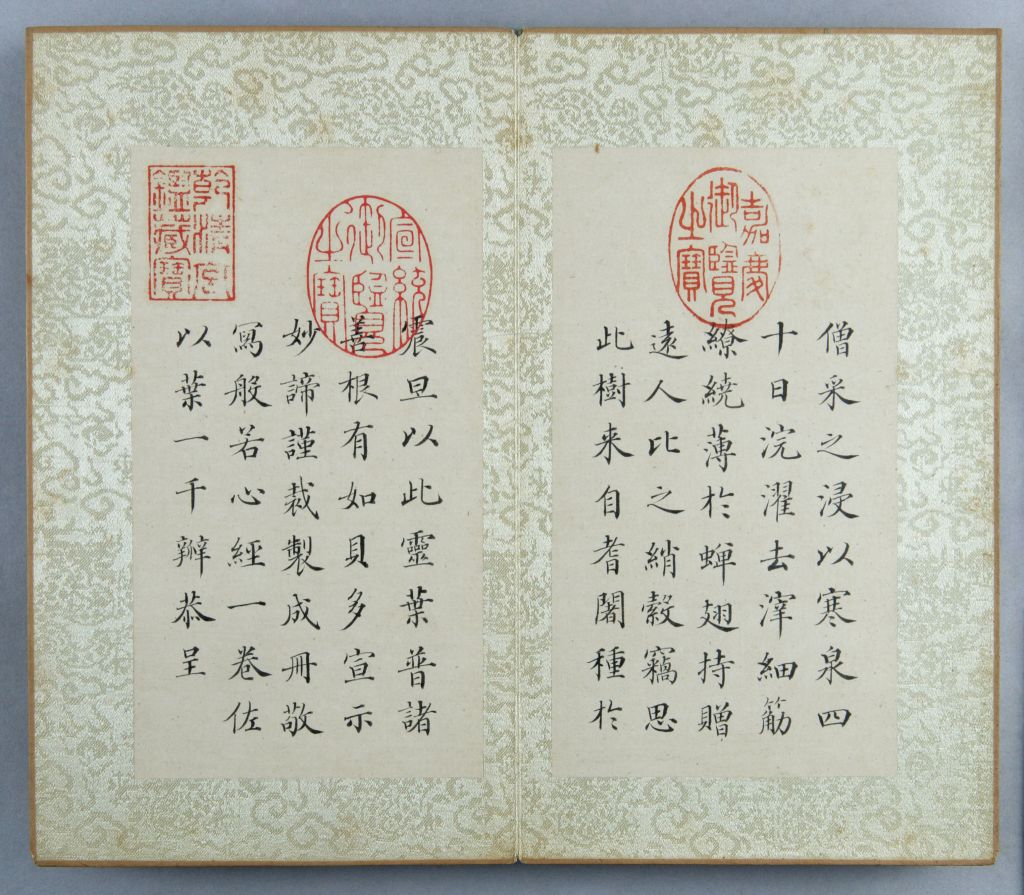 嘉慶
御覽
之寶
僧采之浸以寒泉四
十日浣濯去滓細觔
繚繞薄於蟬翅持贈
遠人比之綃縠竊思
此樹来自耆闍種於
宣統
御覽
之寶
震旦以此靈葉普諸
善根有如貝多宣示
妙諦謹裁製成冊敬
寫般若心經一卷佐
以葉一千辦恭呈
乾清宮
鑑藏寶